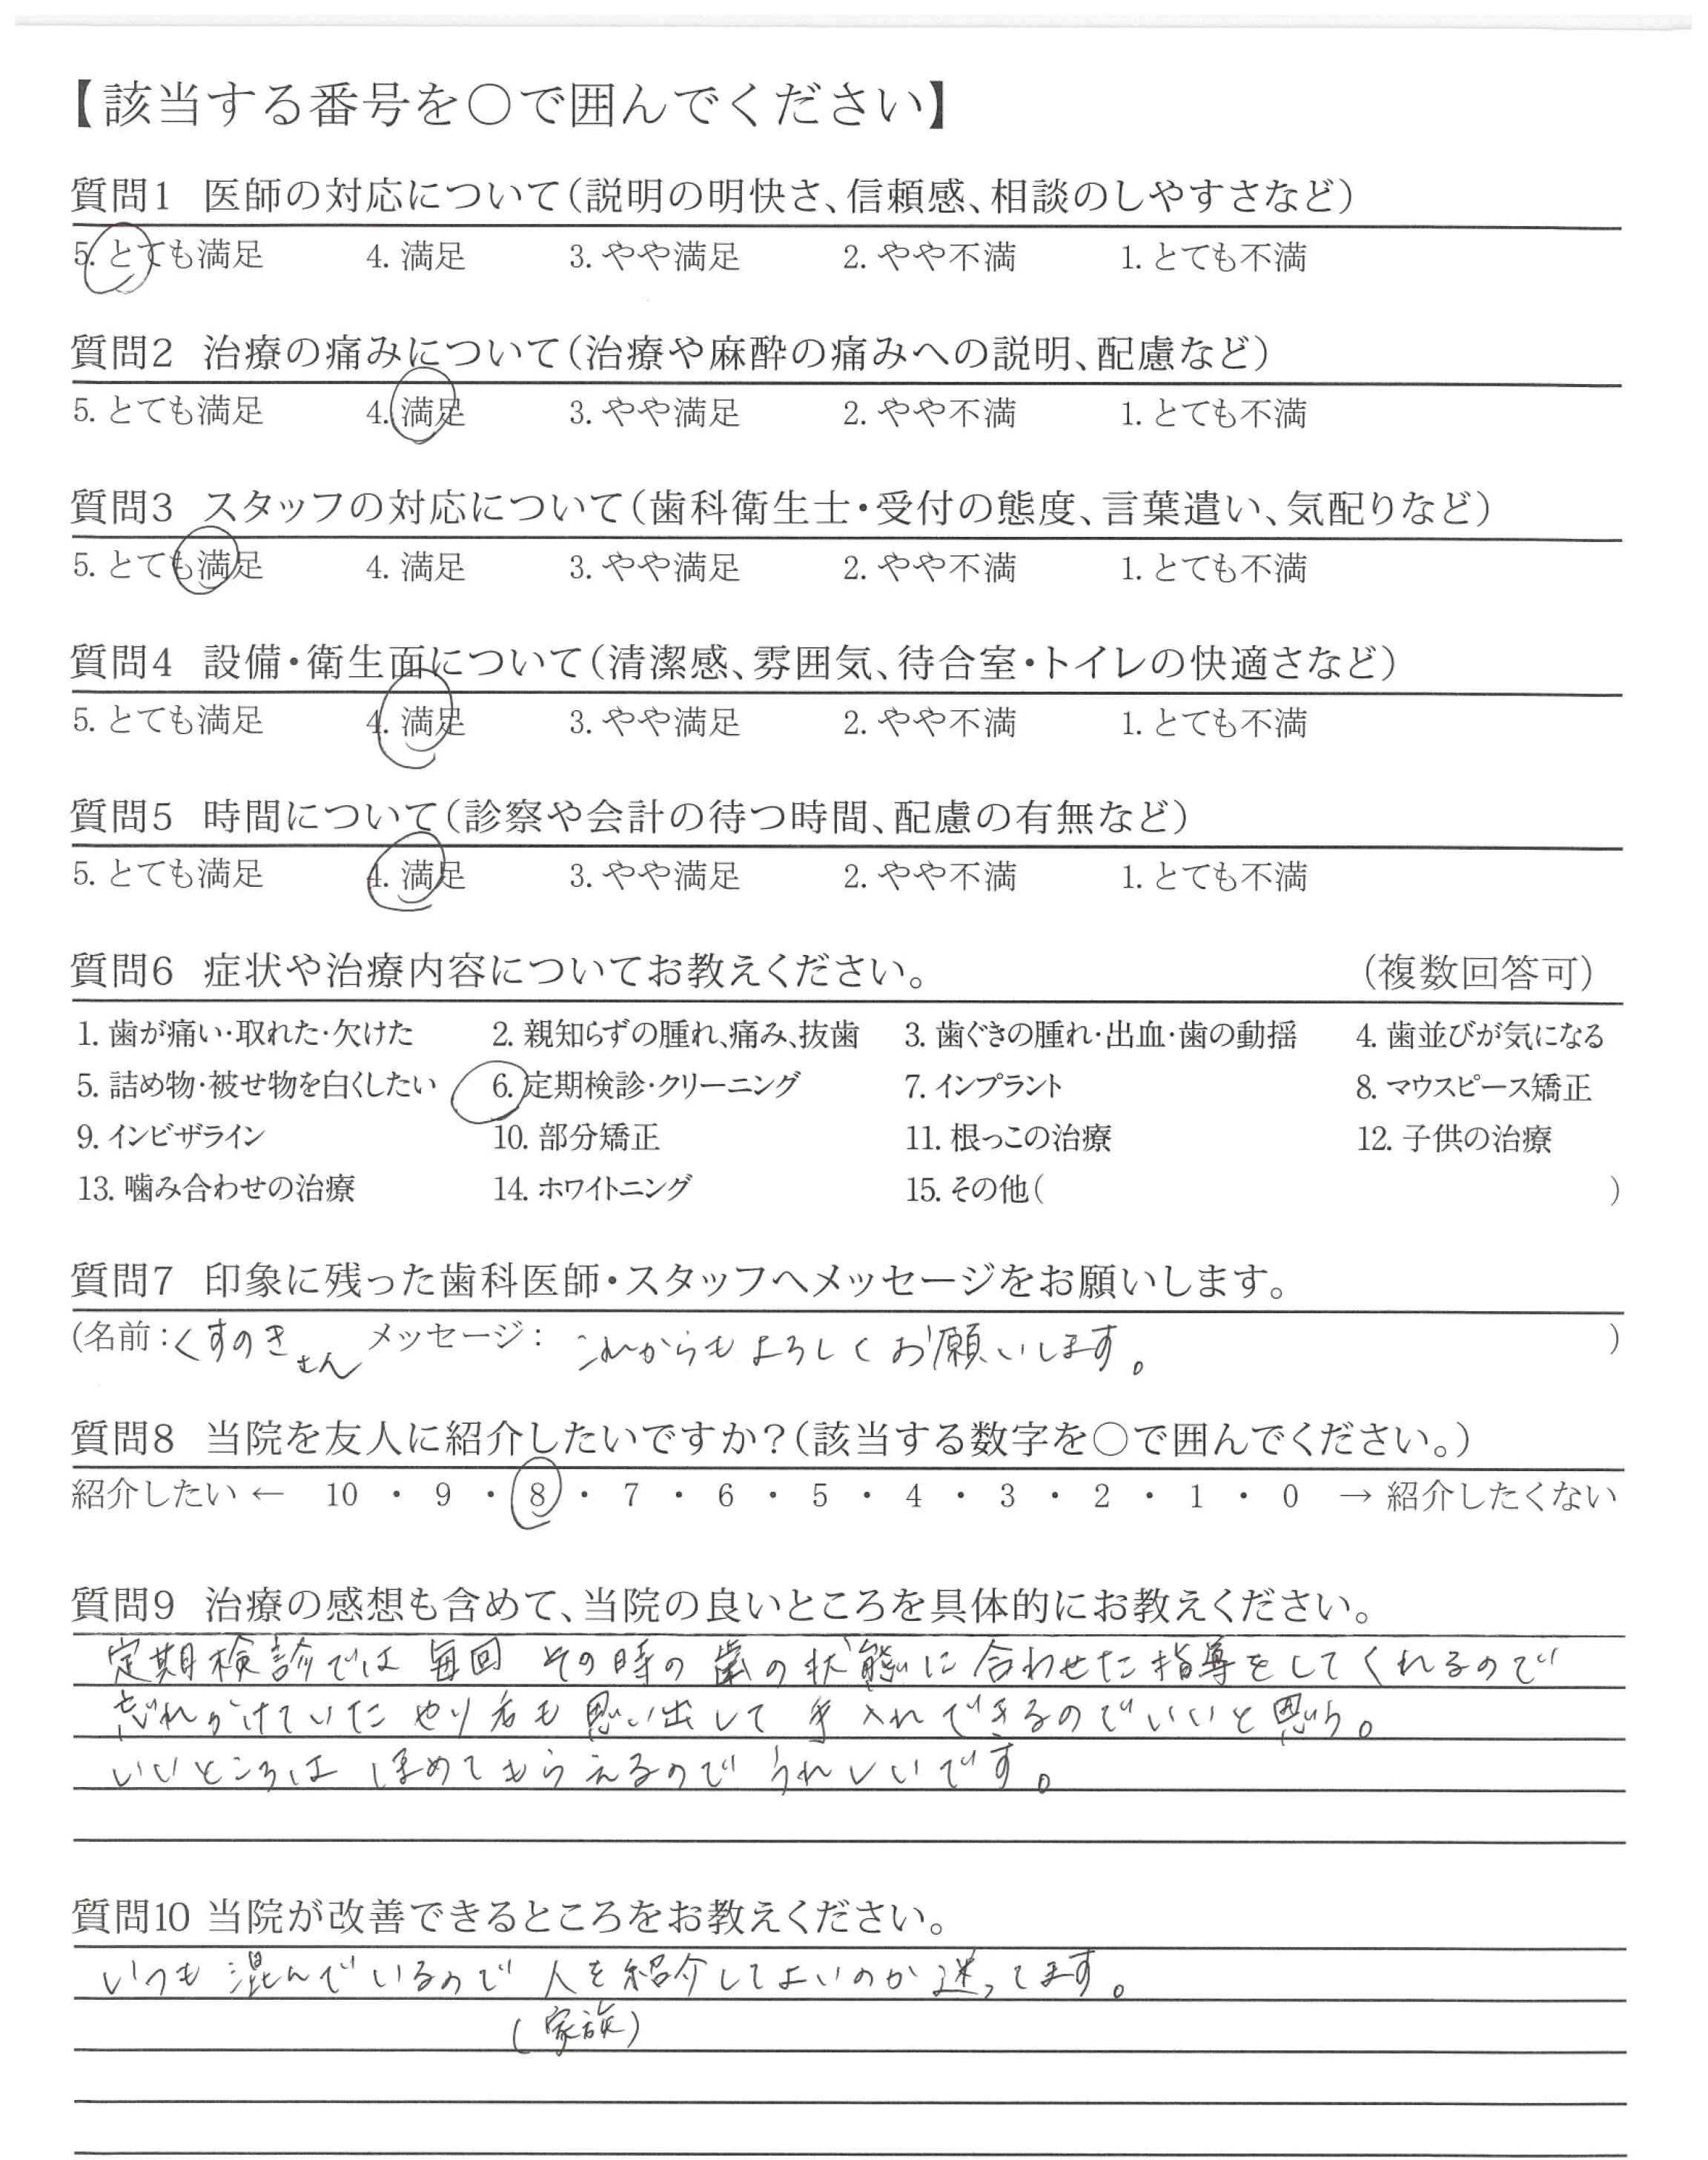 【該当する番号を○で囲んでください】
質問1 医師の対応について(説明の明快さ、信頼感、相談のしやすさなど)
5. とても満足 4. 満足 3. やや満足 2. やや不満 1. とても不満
質問2 治療の痛みについて(治療や麻酔の痛みへの説明、配慮など)
5. とても満足 4. 満足 3. やや満足 2. やや不満 1. とても不満
質問3 スタッフの対応について(歯科衛生士・受付の態度、言葉遣い、気配りなど)
5. とても満足 4. 満足 3. やや満足 2. やや不満 1. とても不満
質問4 設備・衛生面について(清潔感、雰囲気、待合室・トイレの快適さなど)
5. とても満足 4. 満足 3. やや満足 2. やや不満 1. とても不満
質問5 時間について(診察や会計の待つ時間、配慮の有無など)
5. とても満足 4. 満足 3. やや満足 2. やや不満 1. とても不満
質問6 症状や治療内容についてお教えください。 (複数回答可)
1. 歯が痛い・取れた・欠けた 2. 親知らずの腫れ、痛み、抜歯 3. 歯ぐきの腫れ・出血・歯の動揺 4. 歯並びが気になる
5. 詰め物・被せ物を白くしたい 6. 定期検診・クリーニング 7. インプラント 8. マウスピース矯正
9. インビザライン 10. 部分矯正 11. 根っこの治療 12. 子供の治療
13. 噛み合わせの治療 14. ホワイトニング 15. その他( )
質問7 印象に残った歯科医師・スタッフへメッセージをお願いします。
(名前:くすのきさん メッセージ: これからもよろしくお願いします。 )
質問8 当院を友人に紹介したいですか?(該当する数字を○で囲んでください。)
紹介したい ← 10 ・ 9 ・ 8 ・ 7 ・ 6 ・ 5 ・ 4 ・ 3 ・ 2 ・ 1 ・ 0 → 紹介したくない
質問9 治療の感想も含めて、当院の良いところを具体的にお教えください。
定期検診では毎回 その時の歯の状態に合わせた指導をしてくれるので
忘れかけていたやり方も思い出して手入れできるのでいいと思う。
いいところは ほめてもらえるので うれしいです。
質問10 当院が改善できるところをお教えください。
いつも混んでいるので 人を紹介してよいのか迷ってます。
(家族)